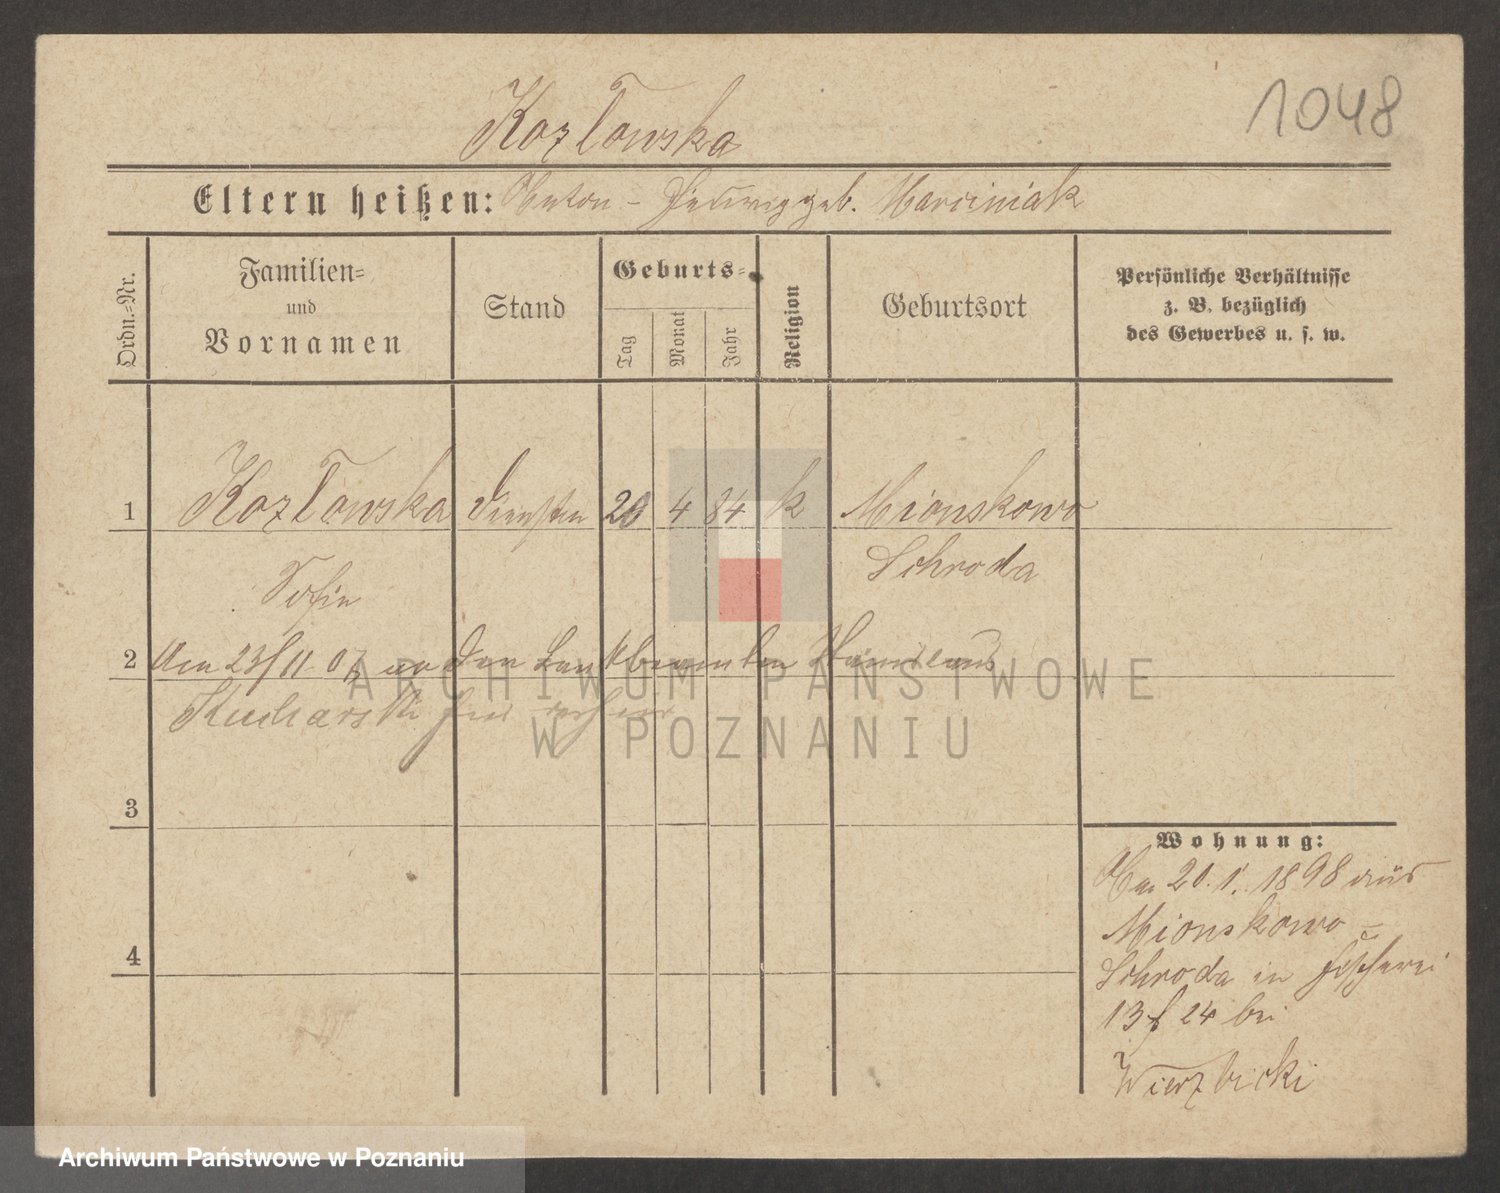 1048
Kozlowska
Eltern heißen: Anton - Hedwig geb. Marciniak
Ordn.-Nr.
Familien-
und
Vornamen
Stand
Geburts-
Tag
Monat
Jahr
Religion
Geburtsort
Persönliche Verhältnisse
z. B. bezüglich
des Gewerbes u. s. w.
1 Kozlowska 20 4 84 k Mionskowo
Schroda
Sofie
2 Am 23/11. 07 an den Stanislaus
Kucharski
3
4
Wohnung:
Am 20. 1. 1898 aus
Mionskowo -
Schroda in Fischerei
13 24 bei
Wierzbicki
ARCHIWUM PAŃSTWOWE
W POZNANIU
Archiwum Państwowe w Poznaniu